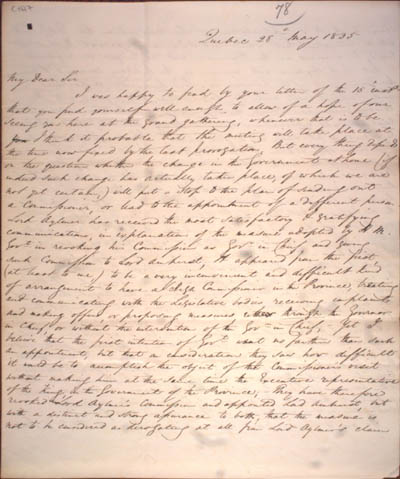 78
Quebec 28th May 1835
My Dear Sir
I was happy to find by your letter of the 15th inst
that you find yourself well enough to allow of a hope of our
seeing you here at the Grand gathering, whenever that is to be
I think it probable that the meeting will take place at
the time now fixed by the last prorogation, But every thing depends
on the question whether the change in the Government at home (if
indeed such change has actually taken place, of which we are
not yet certain) will put a stop to the plan of sending out
a Commissioner, or lead to the appointment of a different person
Lord Aylmer has received the most satisfactory & Gratifying
communication, in explanation of the measure adopted by H. M.
Govt in revoking his Commission as Govr in Chief, and giving
such Commission to Lord Amherst, It appeared from the first
(at least to me) to be a very inconvenient and difficult kind
of arrangement to have a High Commissioner in the Province, treating
and communicating with the Legislative bodies, receiving complaints
and making offers or proposing measures either through the Governor
in Chief, or without the intervention of the Govr in Chief. Yet I
believe that the first intention of Govt went no farther than such
an appointment, but that on considerations they saw how difficult
it would be to accomplish the object of the Commissioners visit
without making him at the same time the Executive representative
of the King in the Government of the Province; They have therefore
revoked Lord Aylmer's Commission and appointed Lord Amherst, but
with a distinct and strong assurance to both, that the measure is
not to be considered as derogating at all from Lord Aylmer's claim